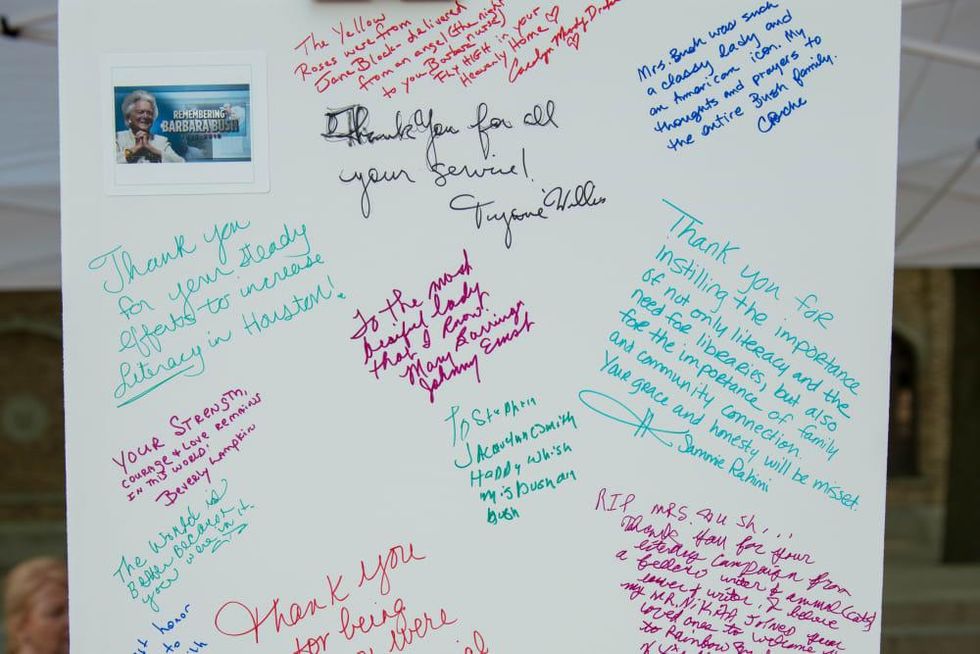 The Yellow
Roses were from
Jane Block - delivered
from an angel (the night
to you Barbara nurse)
Fly HIGH in your
Heavenly Home ♡
Carolyn Moody
Mrs. Bush was such
a classy lady and
an American icon. My
thoughts and prayers to
the entire Bush family.
REMEMBERING
BARBARA BUSH
Thank You for all
your service!
Tyrone Willis
Thank you
for your steady
efforts to increase
Literacy in Houston!
To the most
beaiful lady
that I know!
Mary Barringer
Johnny Ernst
Thank you for
instilling the importance
of not only literacy and the
need for libraries, but also
for the importance of family
and community connection.
Your grace and honesty will be missed.
Sammie Rahimi
YOUR STRENGTH,
COURAGE & LOVE REMAINS
IN THIS WORLD!
Beverly Lampkin
To Stephin
Jacqulynn Smith
Happy Whish
Bush
The World is
Better Because
your were in it.
RIP MRS.
Thank You for your
literacy campaign from
a fellow writer & animal (cats)
lover & writer. I believe
my MR. NIKITA, joined your
loved ones to welcome
to Rainbow
Thank you
for being
were
honor
to